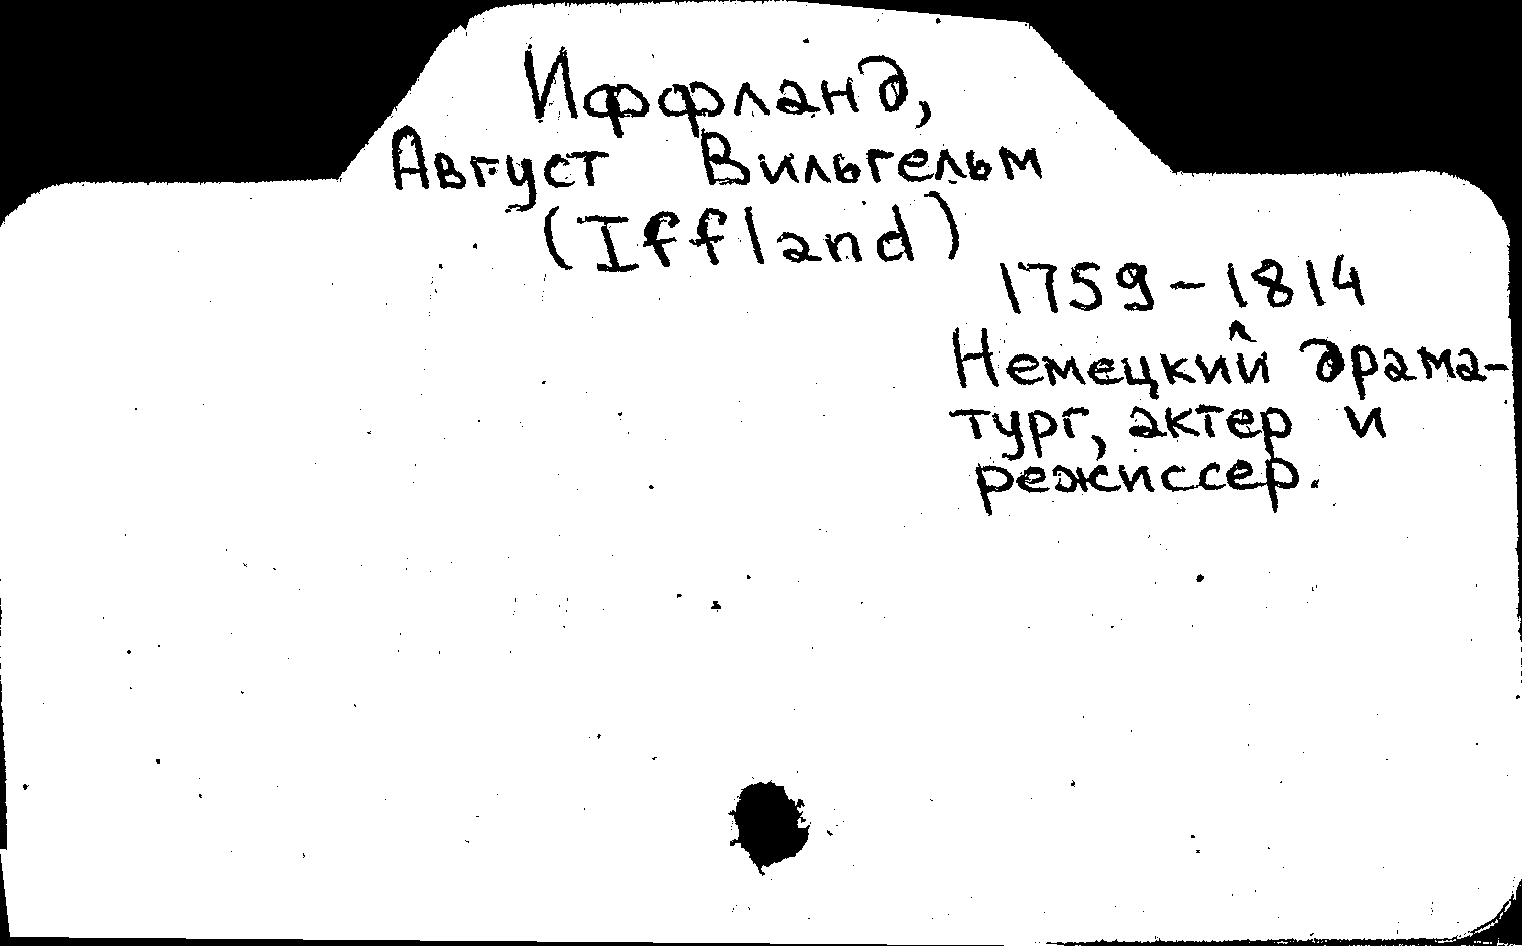 Иффланд,
Август Вильгельм
(Iffland)
1759-1814
Немецкий драма-
тург, актер и
режиссер.